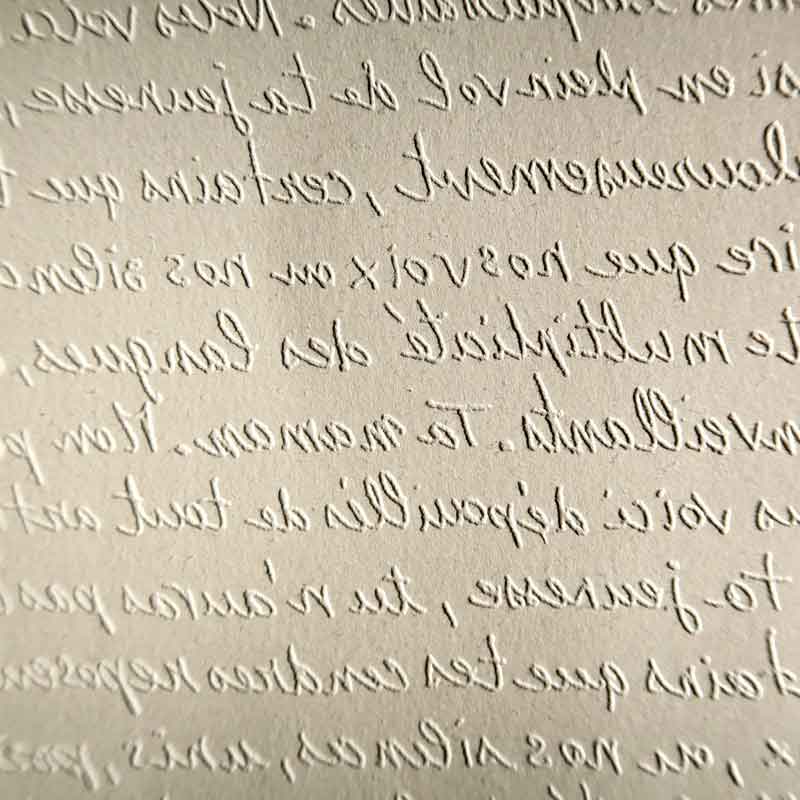 Nous voici
si en plein vol de ta jeunesse,
loureusement, certains que t
ire que nos voix ou nos silenc
te multiplicité des langues,
nveillants. Ta maman. Mon p
us voici dépouillés de tout art
ta jeunesse, tu n'auras pas
tains que tes cendres repose
x, ou nos silences, unis,